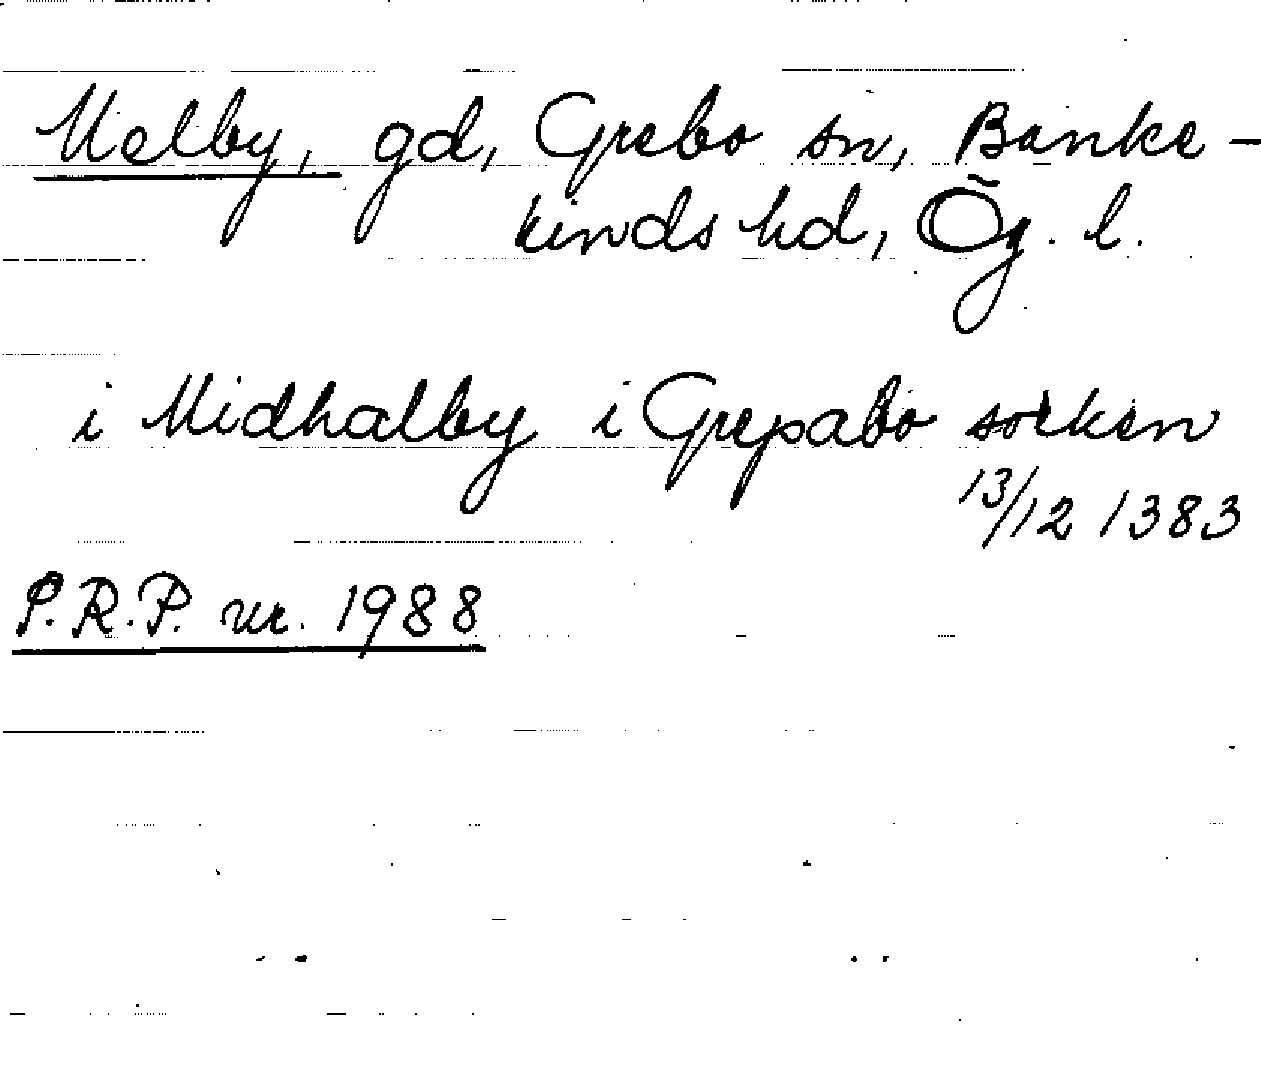 Melby, gd, Grebo sn, Banke-
kinds hd, Ög. l.
i Midhalby i Grepabo sokken
13/12 1383
P.R.P. nr. 1988